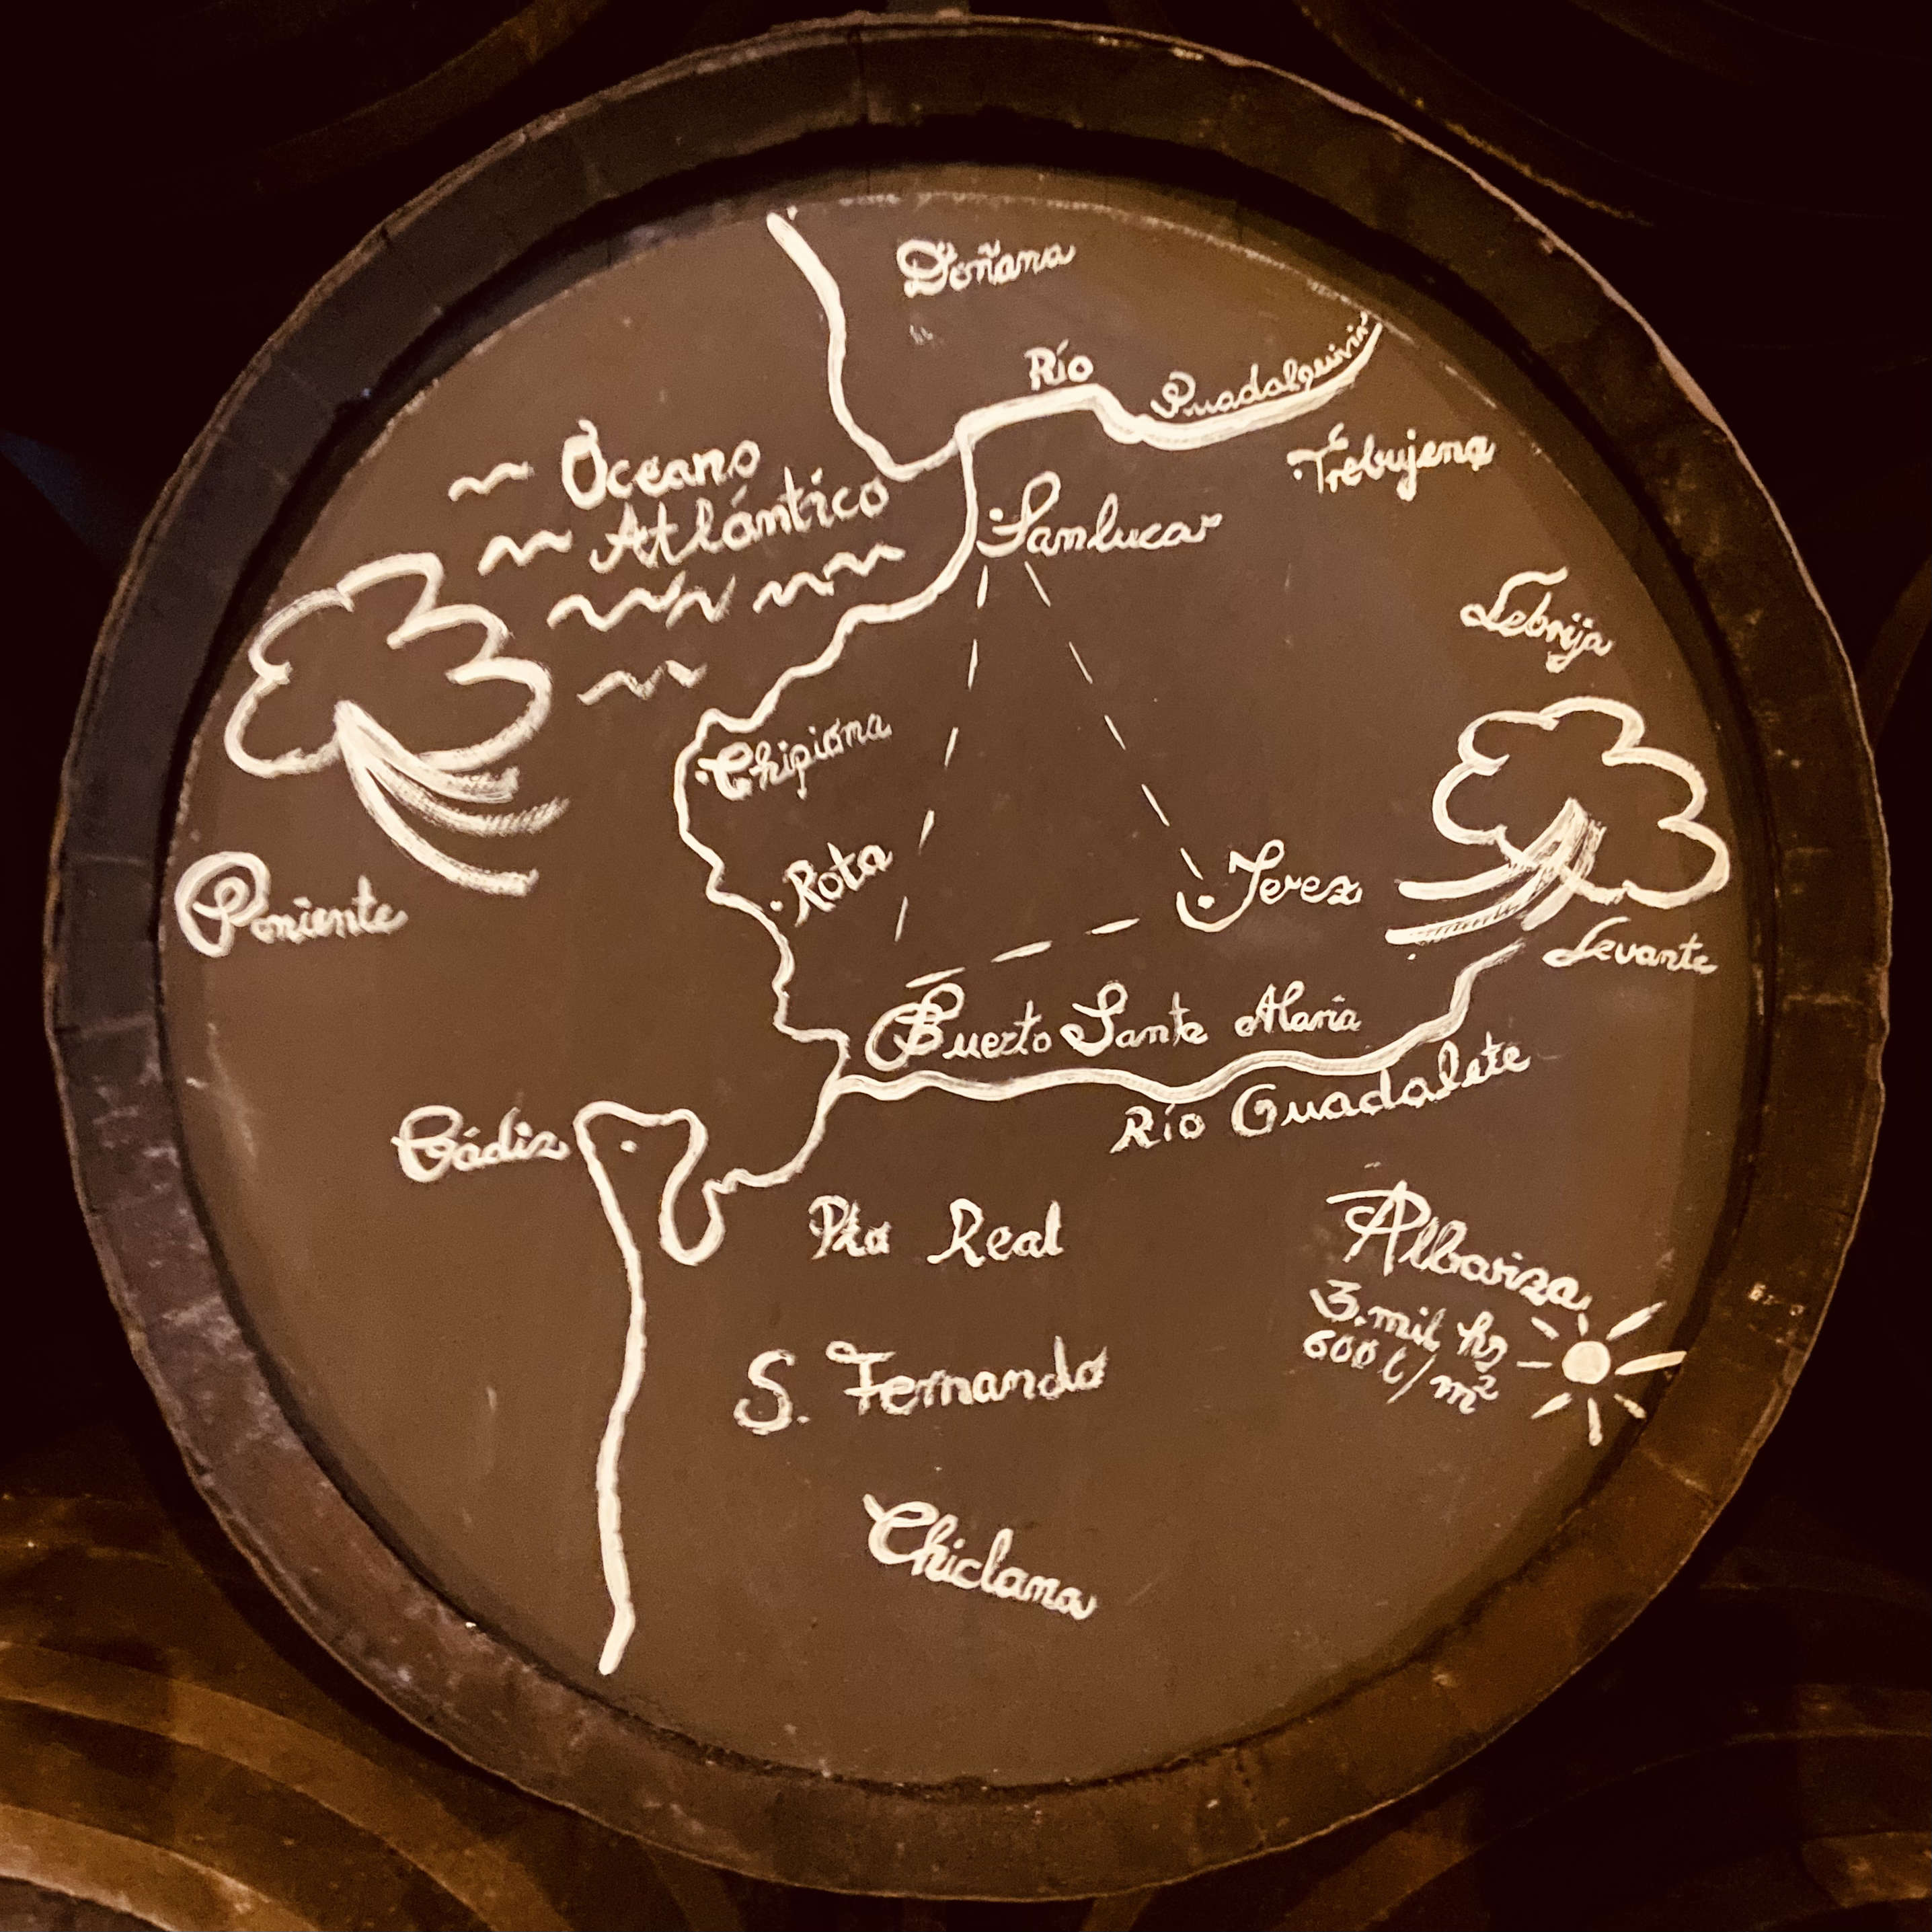 Doñana
Río Guadalquivir
Oceano
Atlántico
Trebujena
Sanlucar
Lebrija
Chipiona
Rota
Jerez
Poniente
Levante
Puerto Santa Maria
Río Guadalete
Cádiz
Pto Real
Albariza
3.mil hs
600 l/m²
S. Fernando
Chiclana